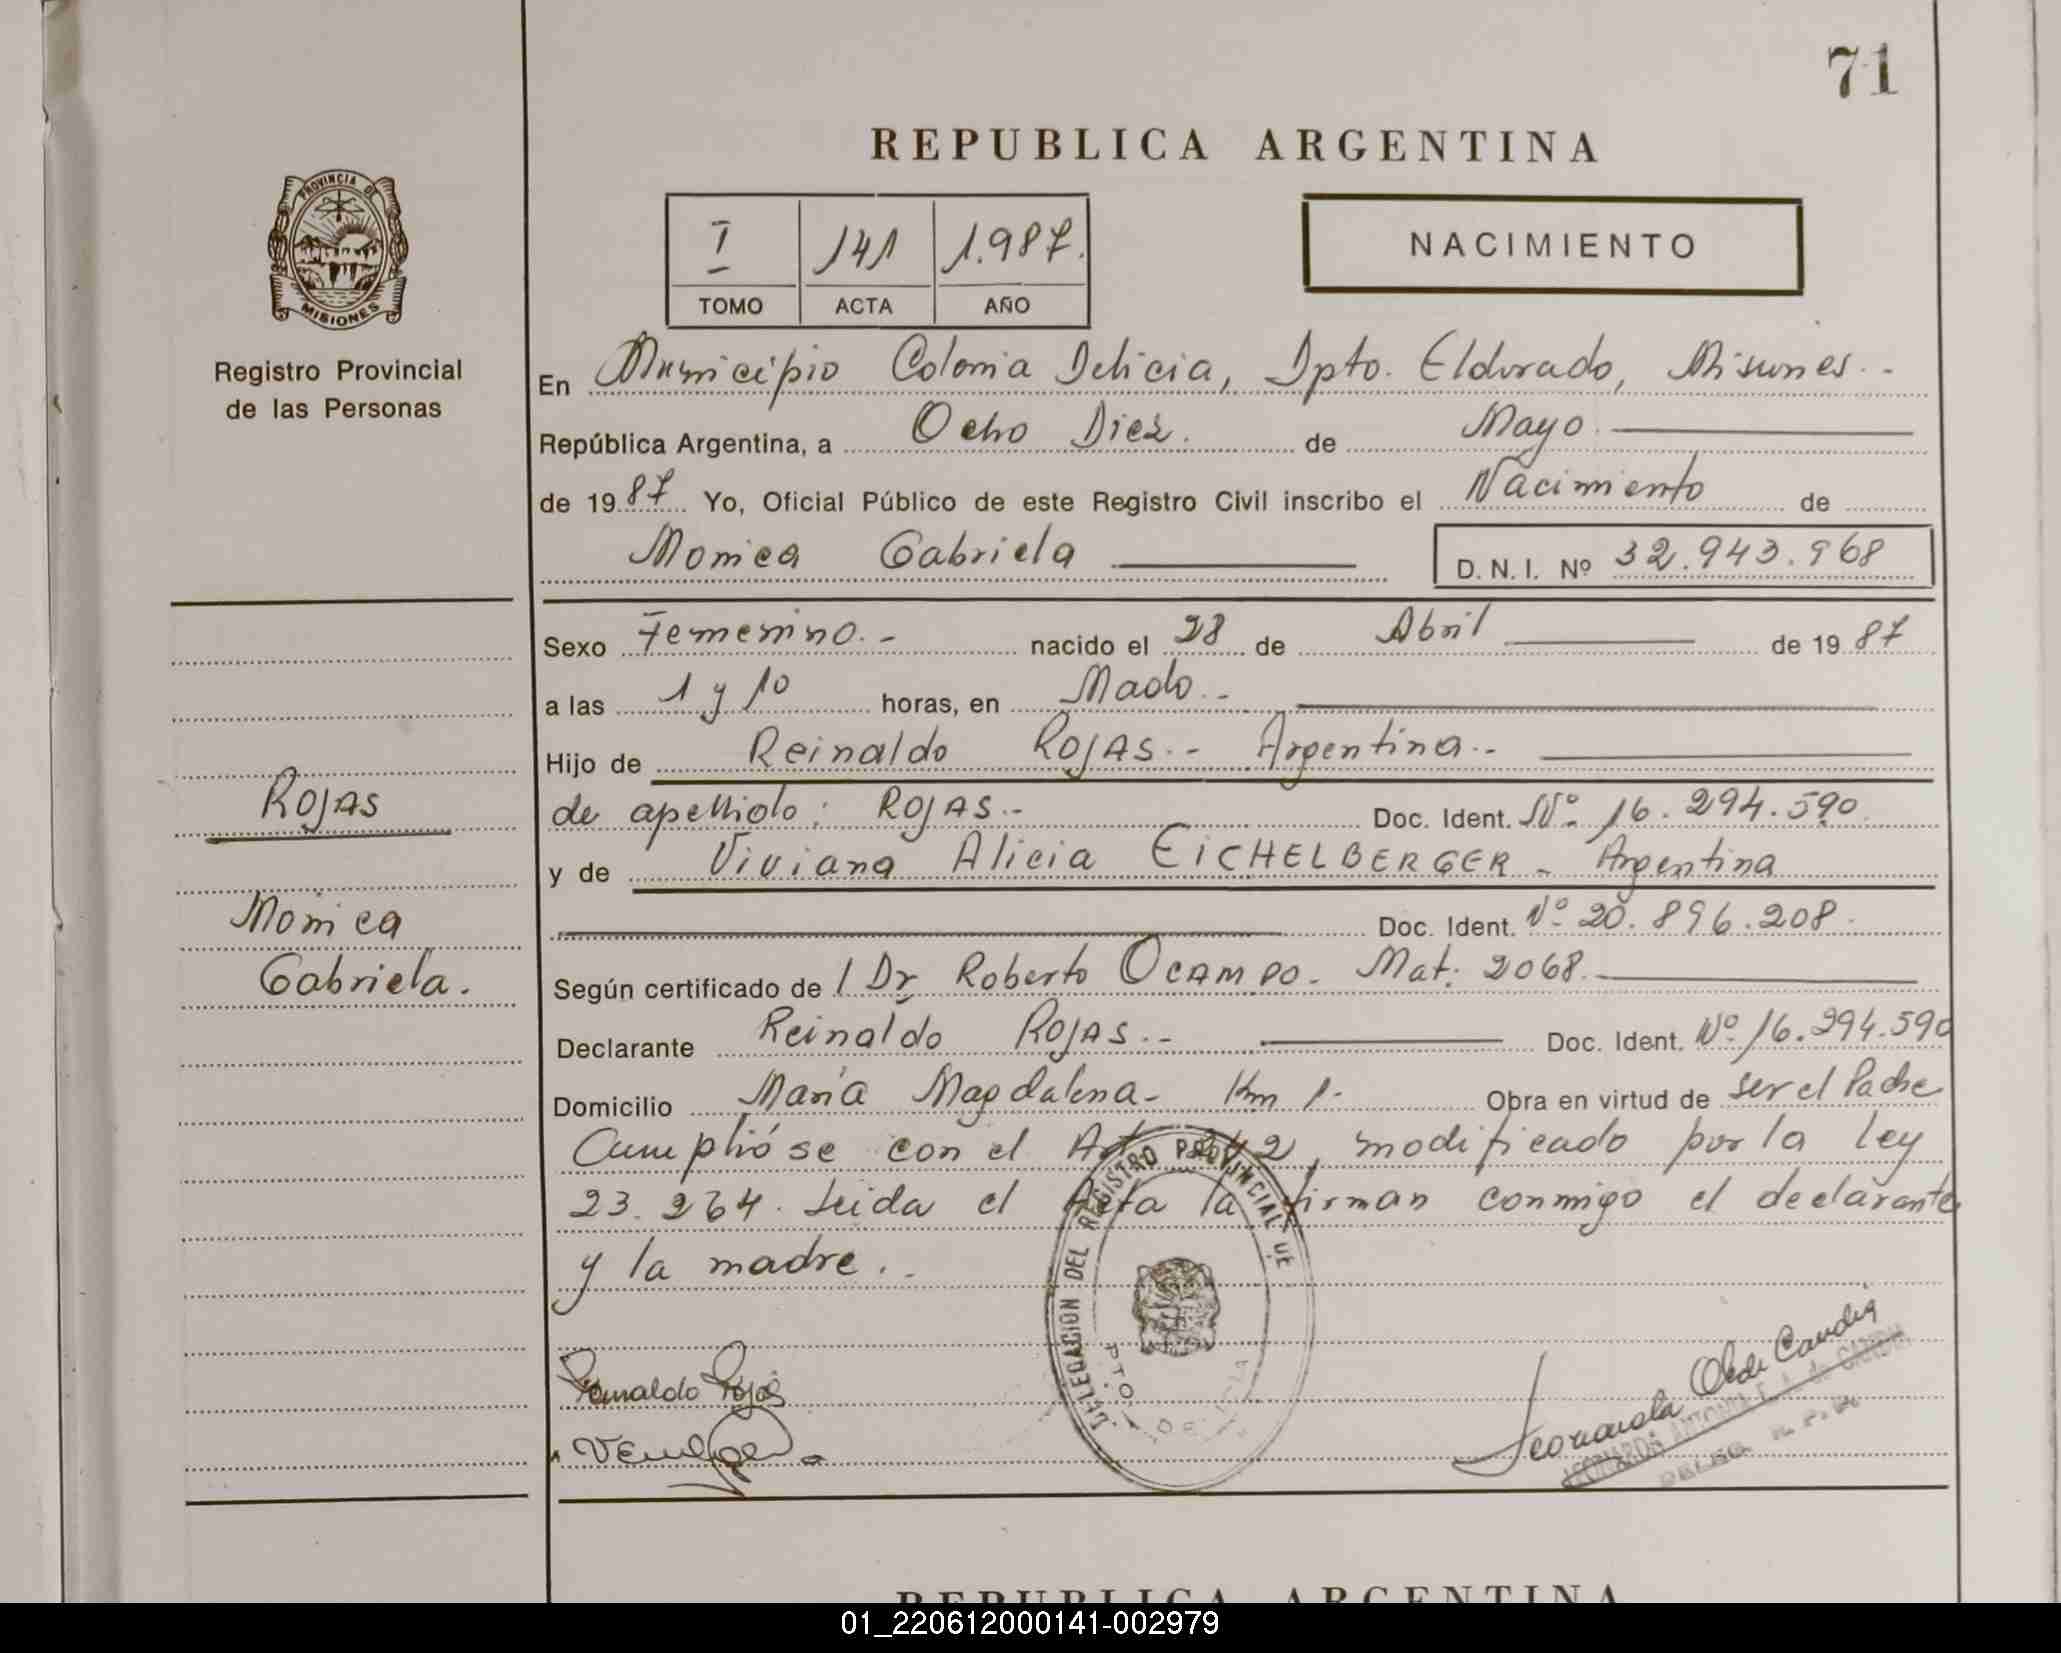 71
REPUBLICA ARGENTINA
PROVINCIA DE
MISIONES
Registro Provincial
de las Personas
I 141 1.987.
TOMO ACTA AÑO
NACIMIENTO
En Municipio Colonia Delicia, Dpto. Eldorado, Misiones.-
República Argentina, a Ocho Diez. de Mayo
de 1987 Yo, Oficial Público de este Registro Civil inscribo el Nacimiento de
Monica Gabriela D. N. I. Nº 32.943.968
Sexo Femenino.- nacido el 28 de Abril de 1987
a las 1 y 10 horas, en Mado.-
Hijo de Reinaldo ROJAS.- Argentina.-
ROJAS
de apellido: ROJAS.- Doc. Ident. Nº 16.294.590
y de Viviana Alicia EICHELBERGER - Argentina
Monica
Doc. Ident. Nº 20.896.208.
Gabriela.
Según certificado de / Dr Roberto OCAMPO. Mat. 2068.
Declarante Reinaldo ROJAS.- Doc. Ident. Nº 16.294.590
Domicilio María Magdalena- Km 1.- Obra en virtud de ser el Padre
Cumplióse con el Art. 242, modificado por la ley
23.264. Leida el Acta la firman conmigo el declarante
y la madre..
DELEGACION DEL REGISTRO PROVINCIAL DE
PTO. DELICIA
Reinaldo Rojas
Leonarda
REPUBLICA ARGENTINA
01_220612000141-002979